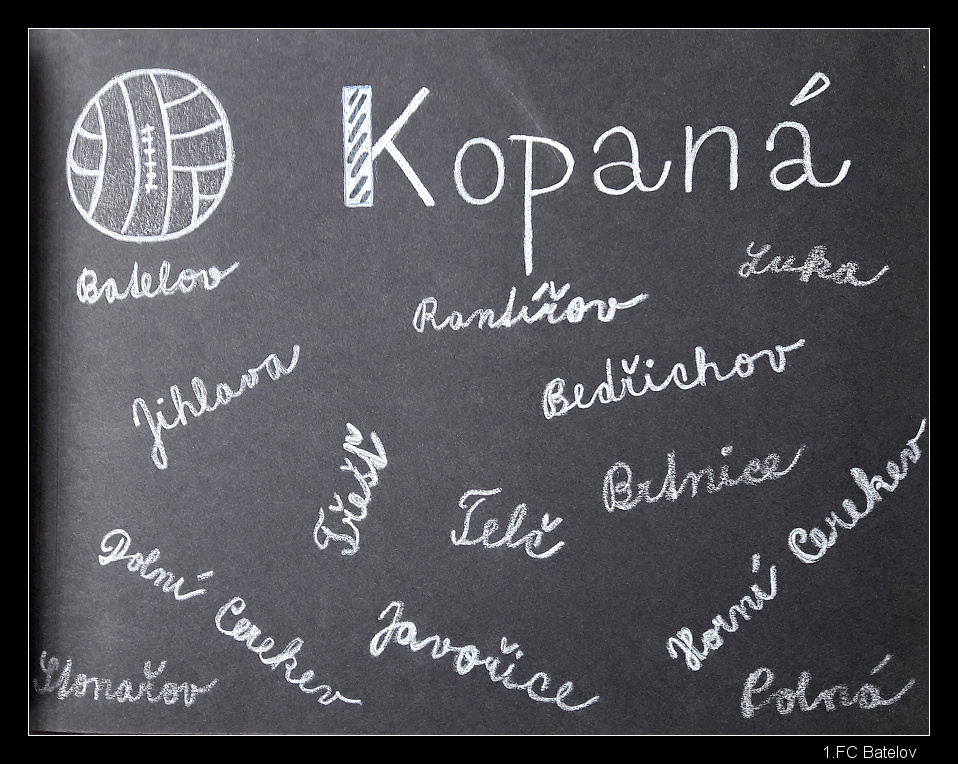 Kopaná
Batelov
Luka
Rantířov
Jihlava
Bedřichov
Třešť
Telč
Brtnice
Horní Cerekev
Dolní Cerekev
Javořice
Stonařov
Polná
1.FC Batelov